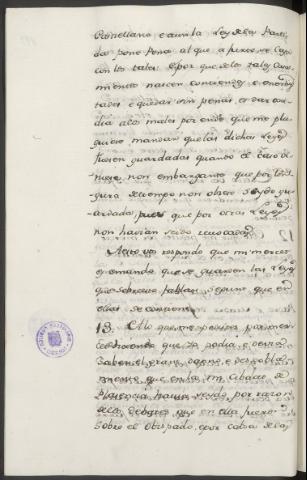 Castellano, e aun la Ley de las Parti-
das pone Pena al que afuere se Casa
con los tales: e por que de los tales Casa-
mientos nascen contiendas, e enemis-
tades e quedar sin penas, es dar osa-
dia a los malos por ende que me plu-
guiere mandar que las dichas Leyes
fuesen guardadas quando el caso vi-
niere, non embargante que por lon-
gura de tiempo non obiere seydo gu-
ardadas, pues que por otras Leyes
non havian seido revocadas.
A esto vos respondo que mi merced
es, e mando que se guarden las Leyes
que sobre esto fablan, segunt que en
ellas se contiene.
13. A lo que me pedistes por mer-
ced diciendo que ya podia, e devria
Saber el grant danno, e despobla-
miento que en la mi Cibdad de
Plasencia havia venido por razon
de los debates que en ella fueron
sobre el Obispado, e por cabsa de los